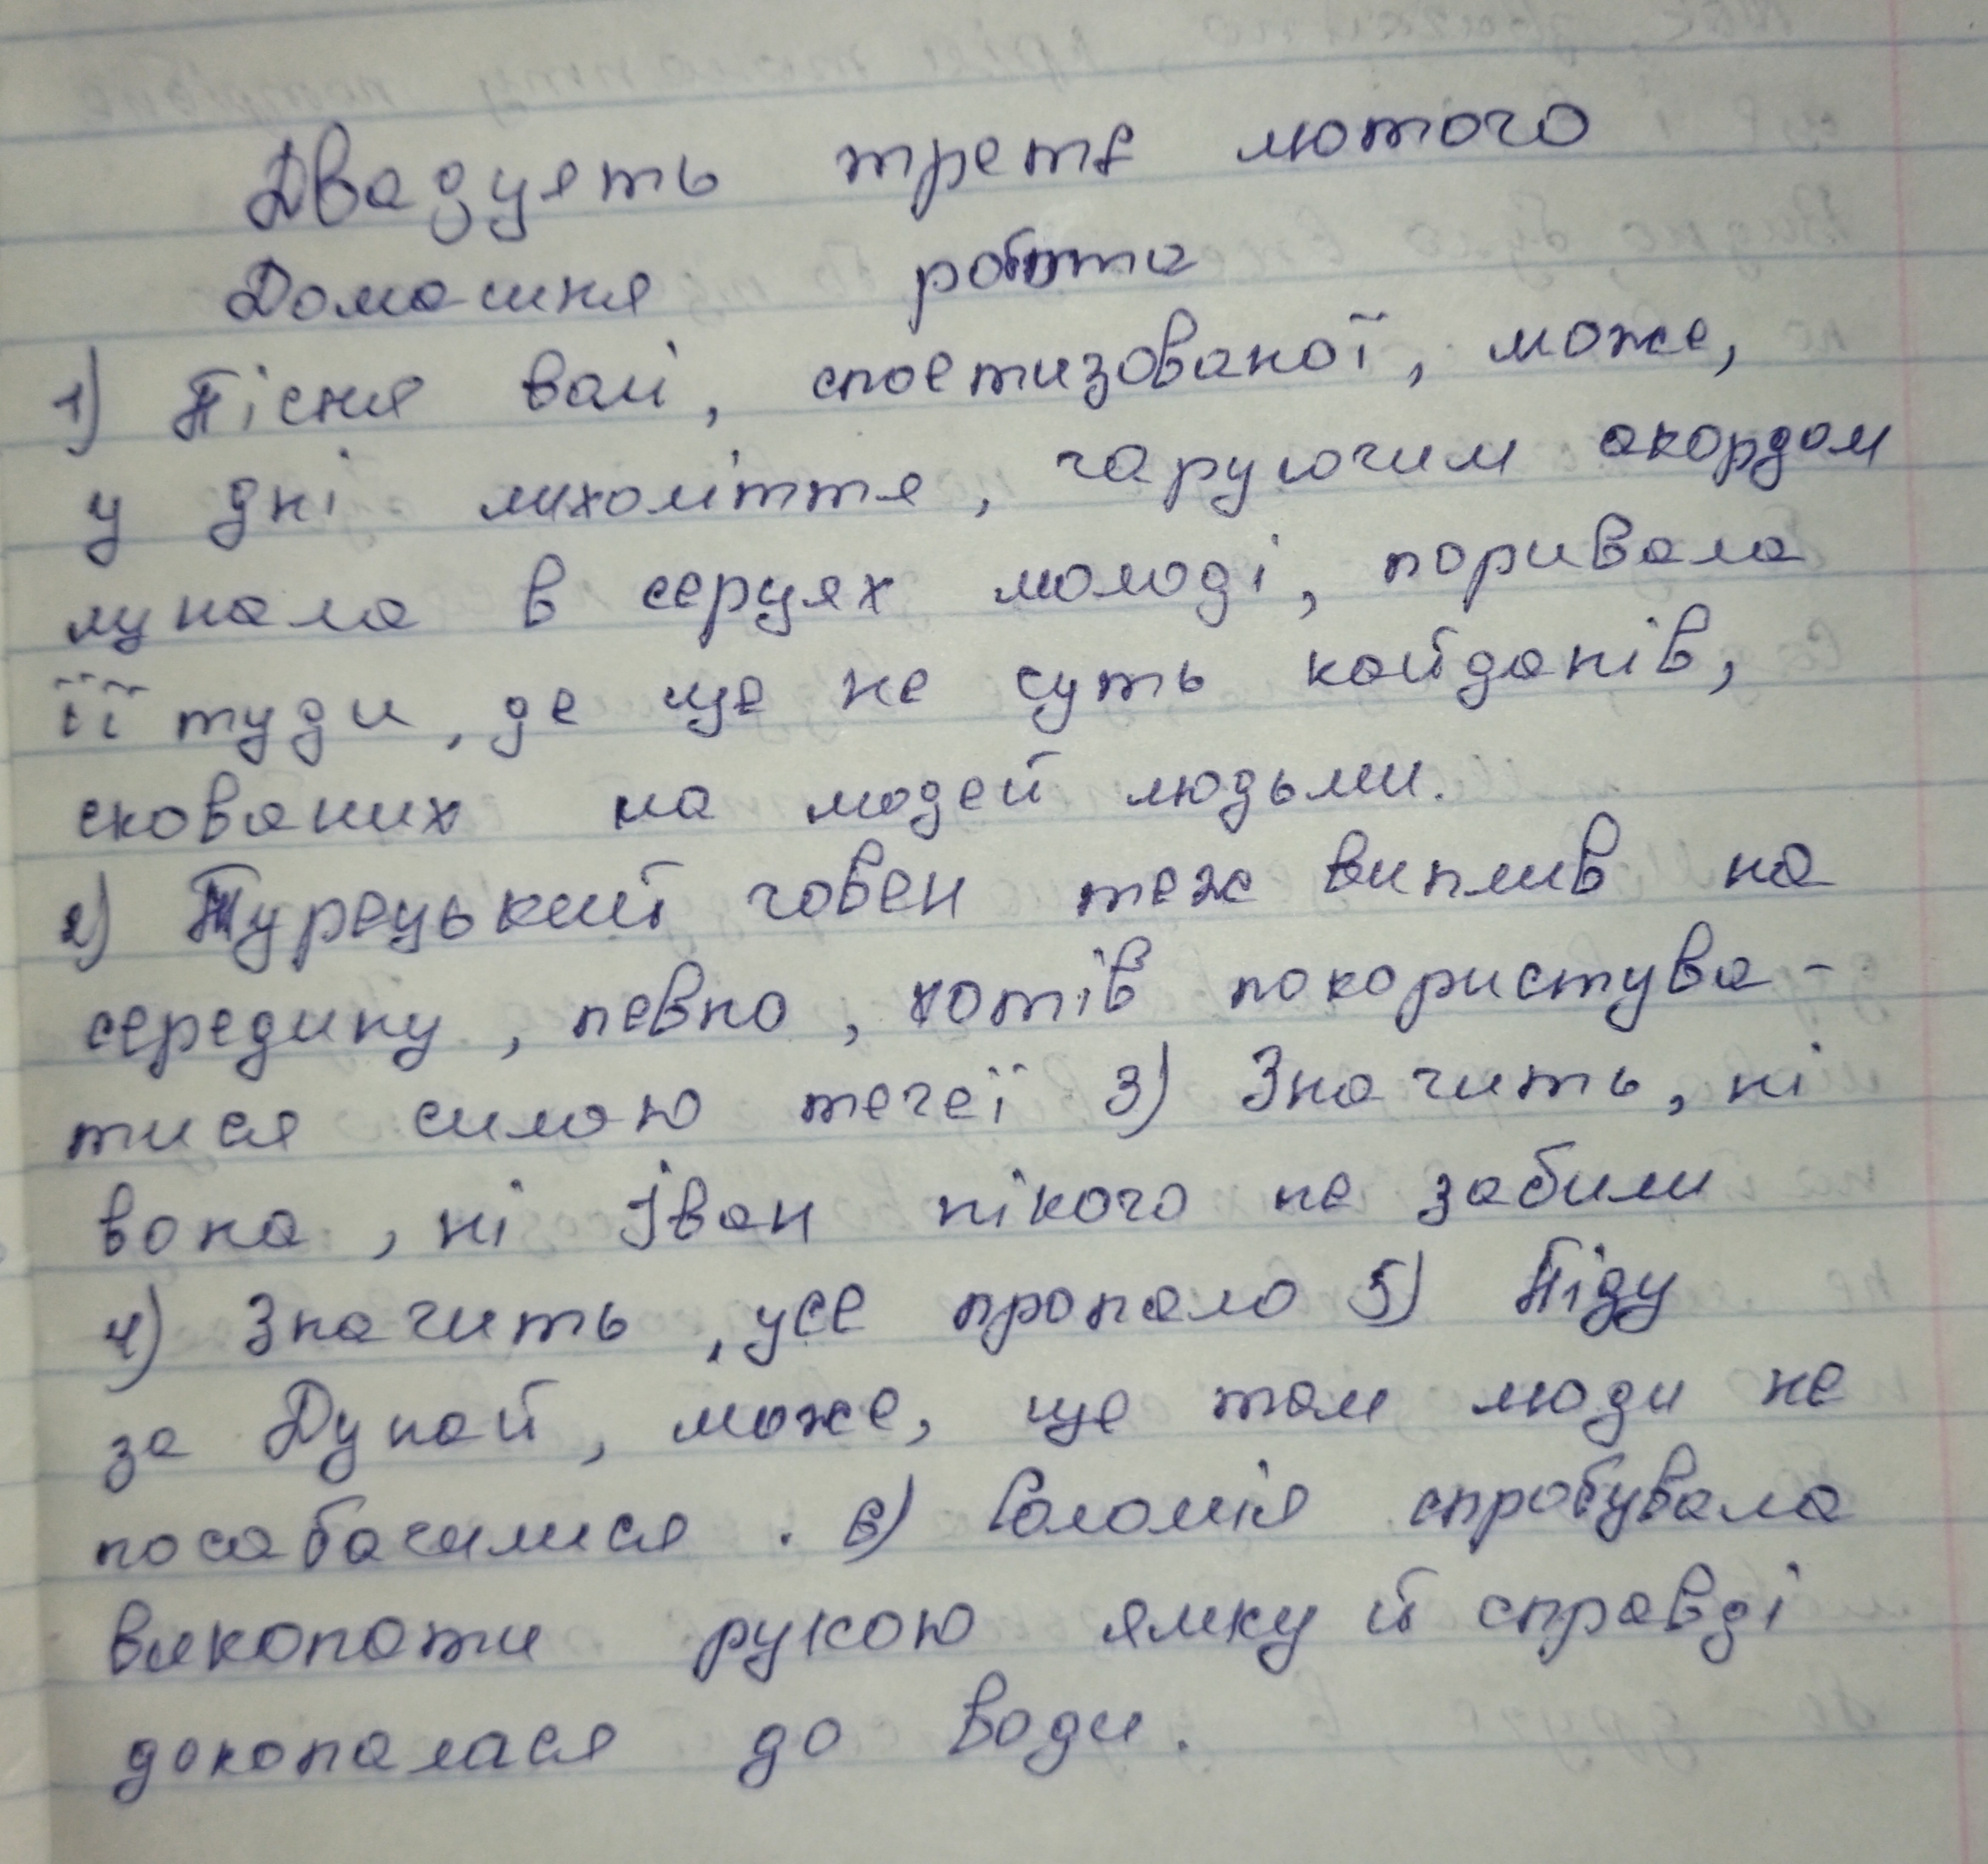 Двадцять третє лютого
Домашня робота
1) Пісня волі, споетизованої, може,
у дні лихоліття, чаруючим акордом
лунала в серцях молоді, поривала
її туди, де ще не суть кайданів,
скованих на людей людьми.
2) Турецький човен теж виплив на
середину, певно, хотів покористува-
тися силою течеї 3) Значить, ні
вона, ні Іван нікого не забили
4) Значить, усе пропало 5) Піду
за Дунай, може, ще там люди не
пособачилися. 6) Соломія спробувала
викопати рукою ямку й справді
докопалася до води.